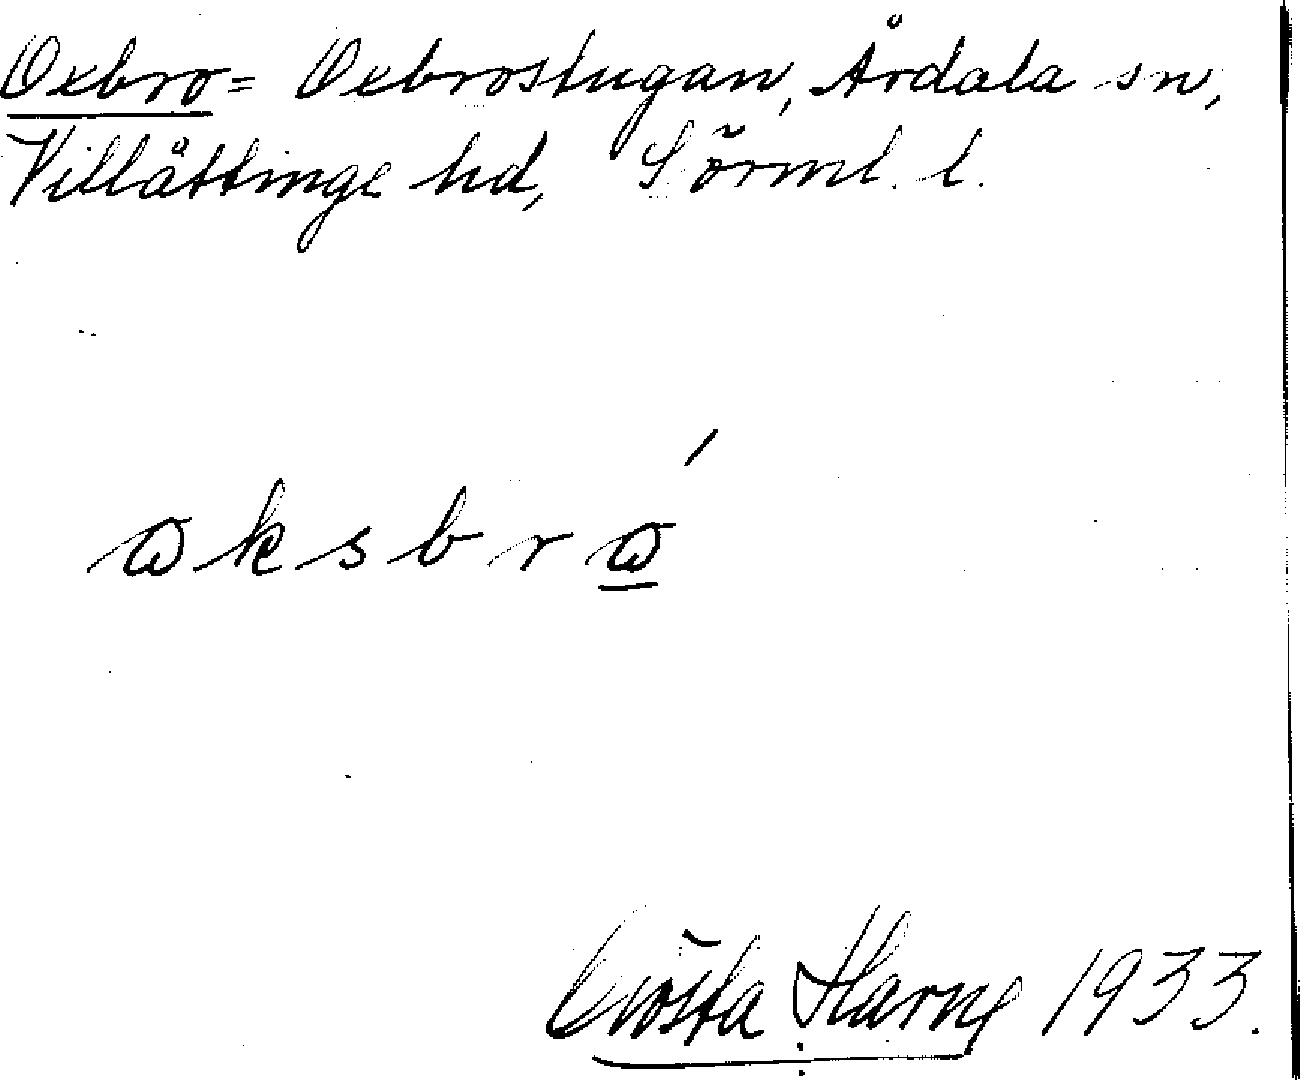 Oxbro = Oxbrostugan, Årdala sn,
Villåttinge hd, Sörml. l.
ɷksbrɷ̠́
Gösta Harne 1933.